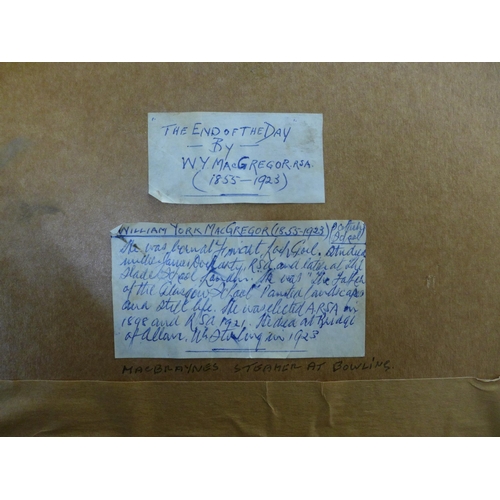 THE END OF THE DAY
— By —
W Y MACGREGOR. RSA.
(1855–1923)
WILLIAM YORK MACGREGOR (1855-1923)
He was born at Finnart Loch Goil. Studied
under James Docharty, RSW, and later at the
Slade School London. He was "The Father
of the Glasgow School" Painted landscapes
and still life. He was elected ARSA in
1898 and RSA 1921. He died at Bridge
of Allan, Nr Stirling in 1923
MACBRAYNES STEAMER AT BOWLING.